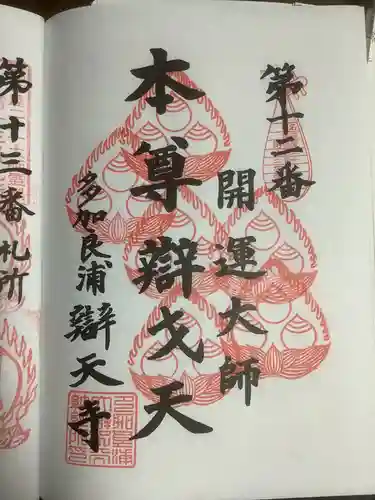 第十二番
開運大師
本尊辯戈天
多加良浦辯天寺
第十三番札所